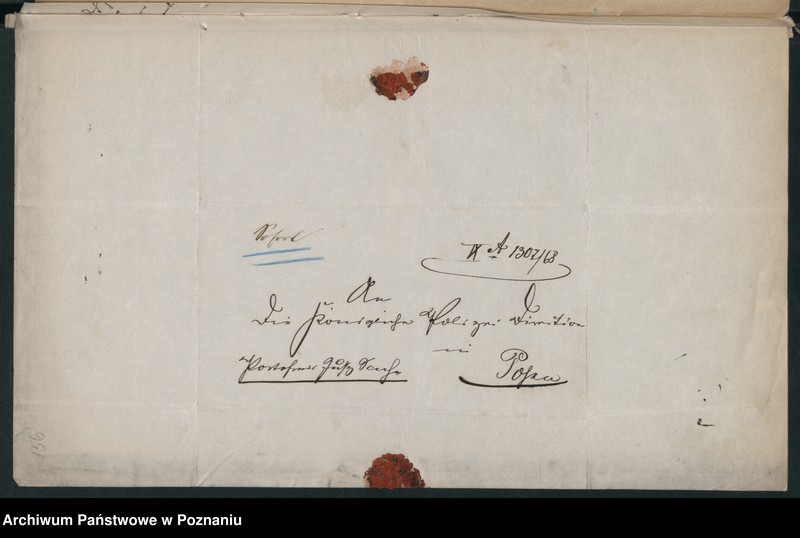 Sofort
IX A 1307/68
An
die Königliche Polizei Direction
in
Posen
Portofreie Justiz Sache
136
Archiwum Państwowe w Poznaniu